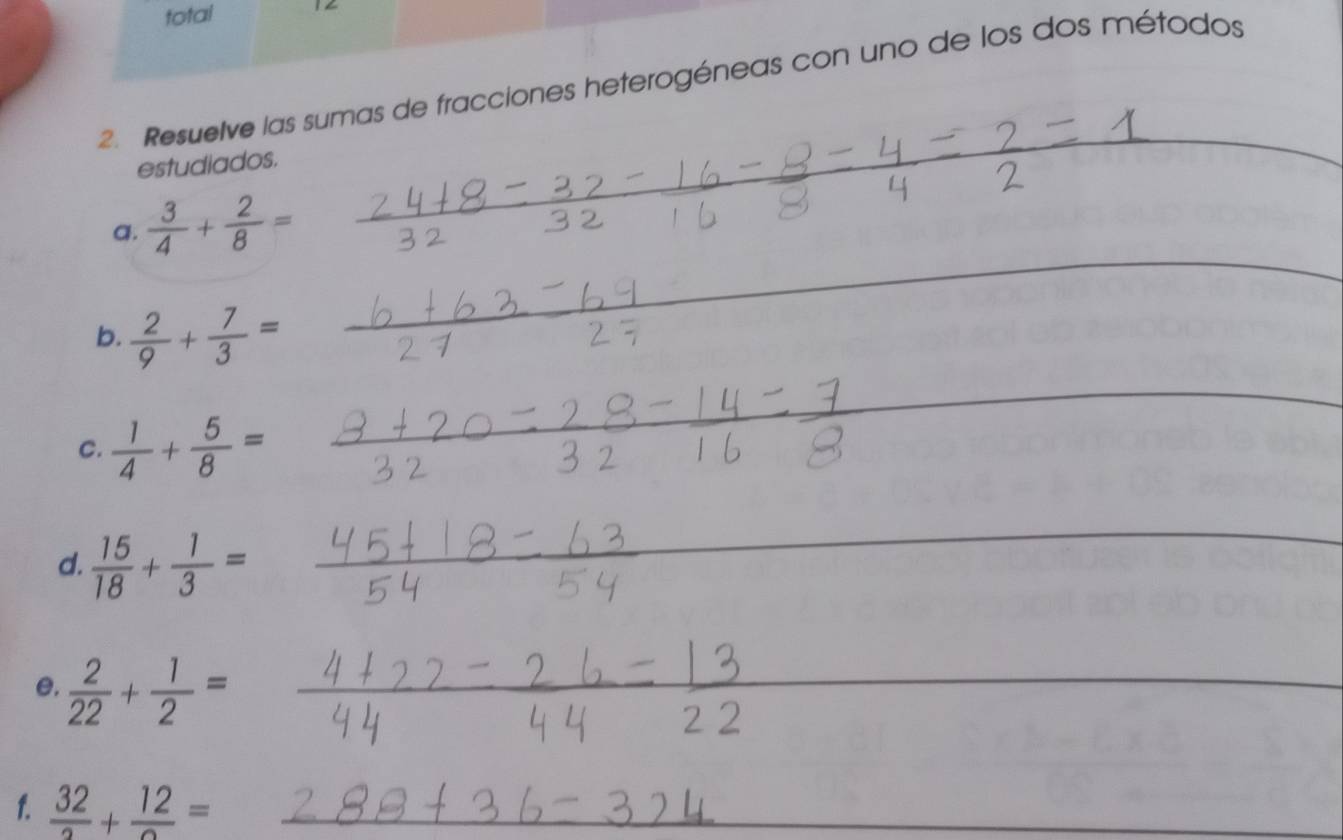 total 12
2. Resuelve las sumas de fracciones heterogéneas con uno de los dos métodos
estudiados.
a. 3/4 + 2/8 = 24+8/32 = 32/32 - 16/16 - 8/8 = 4/4 = 2/2 = 1
b. 2/9 + 7/3 = 6+63/27 = 69/27
c. 1/4 + 5/8 = 8+20/32 = 28/32 - 14/16 = 7/8
d. 15/18 + 1/3 = 45+18/54 = 63/54
e. 2/22 + 1/2 = 4+22/44 - 26/44 = 13/22
f. 32 + 12 = 288+36=324